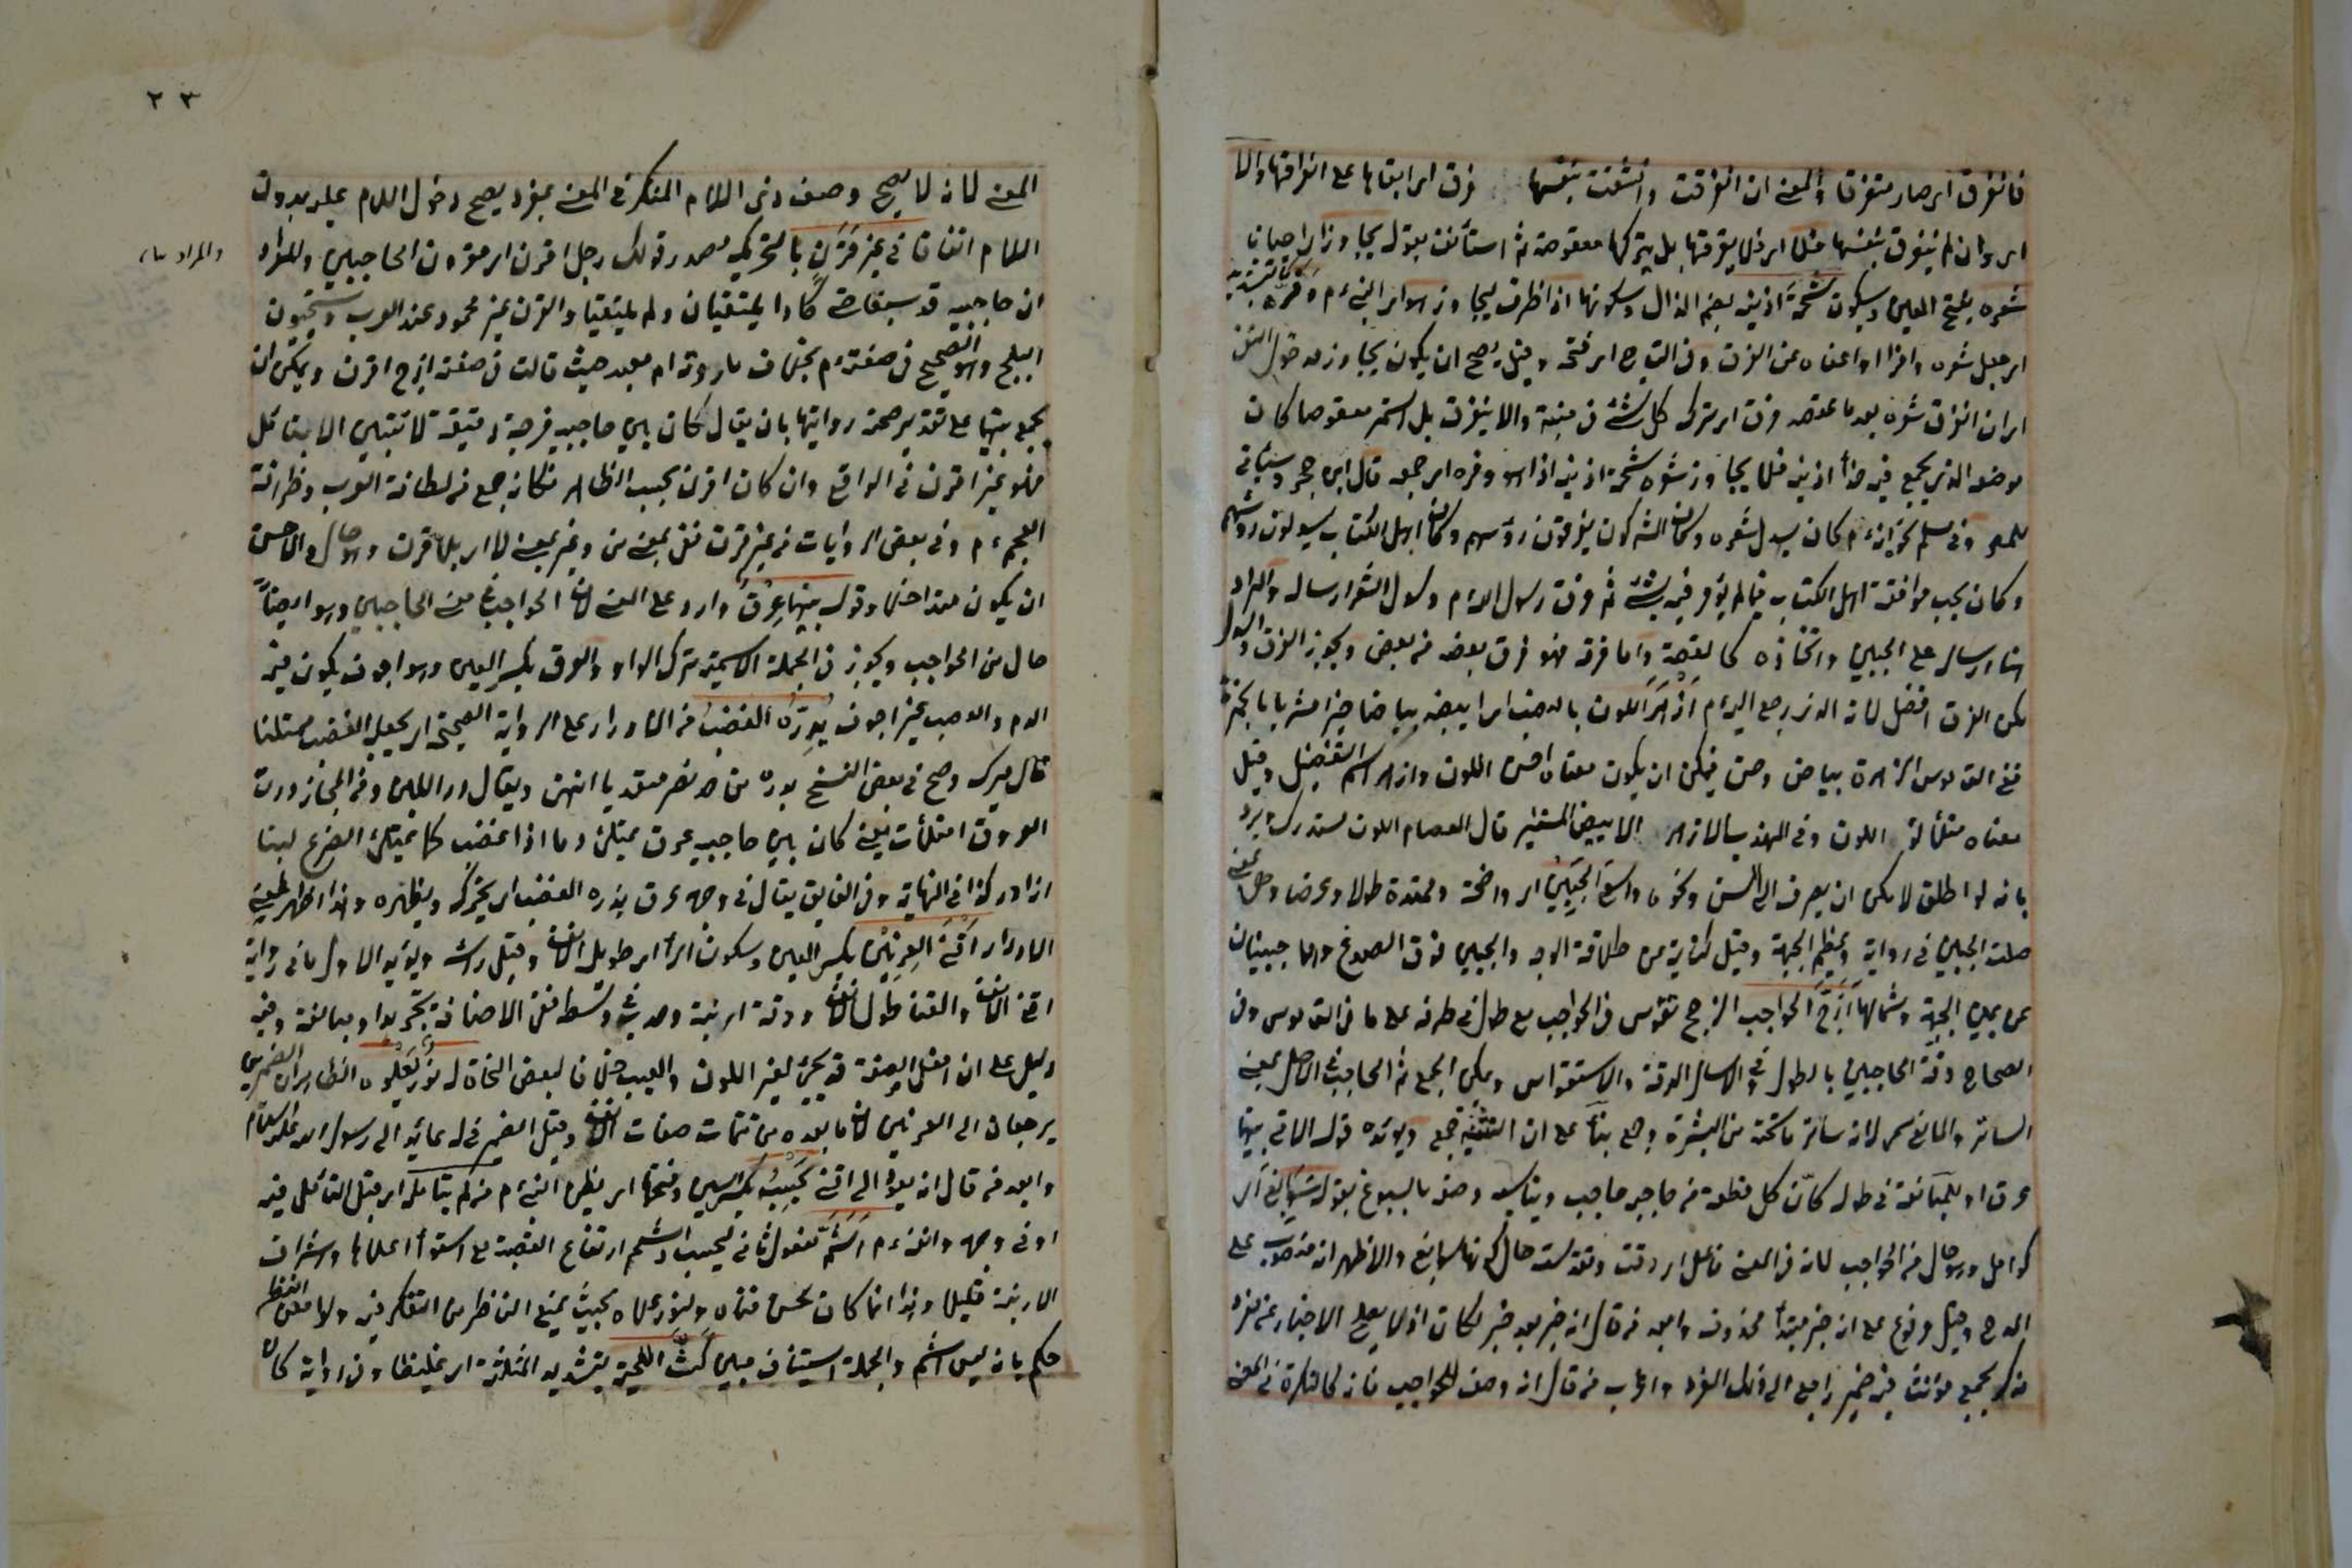 فانفرق اي صار متفرقا والمعنى ان انفرقت وانشقت بنفسها فرق اي ابقاها على انفراقها والا
اي وان لم ينفرق بنفسها فلا اي فلا يفرقها بل يتركها معقوصة ثم استأنف بقوله يجاوز اي احيانا
شعره بفتح العين وسكون شحمة اذنيه بضم الذال وسكونها اذا ظرف ليجاوز هو اي النبي م وفره بتشديد
اي جعل شعره وافرا او اعفاه عن الفرق وفي التاج اي فتحه وقيل يصح ان يكون يجاوز مدخول النفي
اي ان انفرق شعره بعد ما عقصه فرق اي ترك كل شئ في منبته والا ينفرق بل استمر معقوصا كان
موضعه الذي يجمع فيه حذاء اذنيه فلا يجاوز شعره شحمة اذنيه اذا هو وفره اي جمعه قال ابن حجر وسيأتي
وفي مسلم نحوه انه م كان يسدل شعره وكان المشركون يفرقون رؤسهم وكان اهل الكتاب يسدلون رؤسهم
وكان يحب موافقة اهل الكتاب فيما لم يؤمر فيه بشئ ثم فرق رسول الله م وسدل الشعر ارساله والمراد
هنا ارساله على الجبين واتخاذه كالقصة واما فرقه فهو فرق بعضه من بعض ويجوز الفرق والسدل
لكن الفرق افضل لانه الذي رجع اليه م ازهر اللون بالنصب اي ابيضه بياضا نيرا مشربا بالحمرة
ففي القاموس الزهرة بياض وحسن فيمكن ان يكون معناه احسن اللون وازهر اسم التفضيل وقيل
معناه متلألؤ اللون وفي المهذب الازهر الابيض المستنير قال العصام اللون مستدرك ويرد
بانه لو اطلق لامكن ان يصرف الى السن ونحوه واسع الجبين اي واضحة وممتدة طولا وعرضا وهو بمعنى
صلت الجبين في رواية وعظيم الجبهة وقيل كناية عن طلاقة الوجه والجبين فوق الصدغ وهما جبينان
عن يمين الجبهة وشمالها ازج الحواجب الزجج تقوس في الحواجب مع طول في طرفه على ما في القاموس وفي
الصحاح دقة الحاجبين بالطول وفي الاساس الدقة والاستقواس ويمكن الجمع ثم الحاجب في الاصل بمعنى
الساتر والمانع سمي لانه ساتر ما تحته من البشرة وجمع بناء على ان التثنية جمع ويؤيده قوله الاتي بينهما
عرق او للمبالغة في طوله كأن كل قطعة من حاجبه حاجب ويناسبه وصفه بالسبوغ بقوله سوابغ اي
كوامل وهو حال من الحواجب لانه في المعنى فاعل اي دقت وتقوست حال كونها سوابغ والاظهر انه منصوب على
المدح وقيل مرفوع على انه خبر مبتدأ محذوف وابعد من قال انه خبر بعد خبر لكان اذ لا يصلح الاخبار عن مفرد
مذكر بجمع مؤنث فيه ضمير راجع الى ذلك المفرد واغرب من قال انه وصف للحواجب فانه كالنكرة في المعنى
٢٣
المعنى لانه لا يصح وصف ذي اللام المنكر في المعنى بمفرد يصح دخول اللام عليه بدون
اللام اتفاقا في غير قرن بالتحريك مصدر قولك رجل اقرن اي مقرون الحاجبين والمراد
والمراد بها
ان حاجبيه قد سبغا حتى كادا يلتقيان ولم يلتقيا والقرن غير محمود عند العرب ويستحبون
البلج وهو الصحيح في صفته م بخلاف ما روته ام معبد حيث قالت في صفته ازج اقرن ويمكن ان
يجمع بينها على تقدير صحة روايتها بان يقال كان بين حاجبيه فرجة دقيقة لا تتبين الا بتأمل
فهو غير اقرن في الواقع وان كان اقرن بحسب الظاهر فكانه جمع من لطافة العرب وظرافة
العجم م وفي بعض الروايات من غير قرن ففي بمعنى من وغير بمعنى لا اي بلا قرن وهو حال والاحسن
ان يكون متداخلا وقوله بينهما عرق وارد على المعنى لان الحواجب في معنى الحاجبين وهو ايضا
حال من الحواجب ويجوز في الجملة الاسمية ترك الواو والعرق بكسر العين وهو اجوف يكون فيه
الدم والعصب غير اجوف يدره الغضب من الادرار على الرواية الصحيحة اي يجعل الغضب ممتلئا
قال ميرك وصح في بعض النسخ يدره من حد نصر متعديا انتهى ويقال در اللبن ومن المجاز درت
العروق امتلأت يعني كان بين حاجبيه عرق يمتلئ دما اذا غضب كما يمتلئ الضرع لبنا
اذا در كذا في النهاية وفي الفايق يقال في وجهه عرق يدره الغضب اي يحركه ويظهره وهذا اظهر لمعنى
الادرار اقنى العرنين بكسر العين وسكون الراء اي طويل الانف وقيل رأسه ويؤيد الاول ما في رواية
اقنى الانف والقنا طول الانف ودقة ارنبته وحدب في وسطه ففي الاضافة تجريد او مبالغة وفيه
دليل على ان افعل الصفة قد يجئ لغير اللون والعيب خلافا لبعض النحاة له نور يعلوه الظاهر ان الضميرين
يرجعان الى العرنين لان ما بعده من تتمات صفات الانف وقيل الضمير في له عائد الى رسول الله عليه السلام
وابعد من قال انه يعود الى اقنى يحسبه بكسر السين وفتحها اي يظن النبي م من لم يتأمله اي قبل التأمل فيه
او في وجهه وانفه م اشم مفعول ثاني ليحسب والشمم ارتفاع القصبة مع استواء اعلاها واشراف
الارنبة قليلا وهذا انما كان لحسن قناه ولنور علاه بحيث يمنع الناظر من التفكر فيه ولو امعن النظر
حكم بانه ليس اشم والجملة استيناف مبين كث اللحية بتشديد المثلثة اي غليظها وفي رواية كان